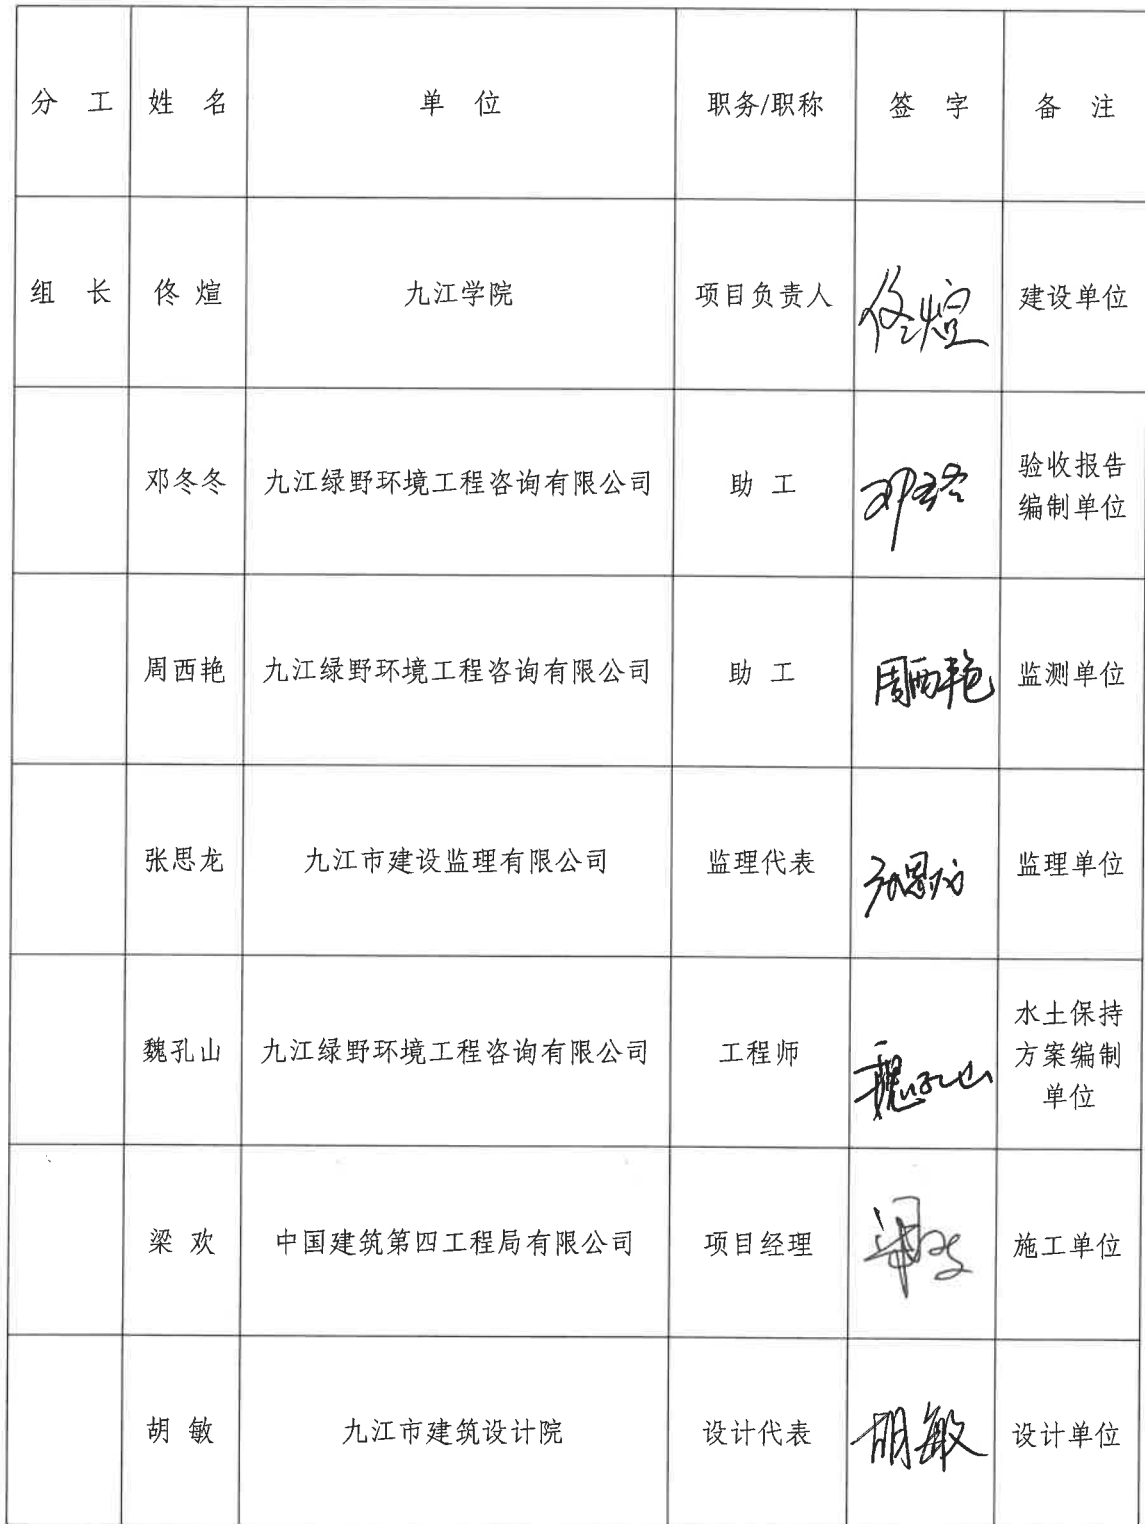 分 工 姓 名 单 位 职务/职称 签 字 备 注
组 长 佟 煊 九江学院 项目负责人 佟煊 建设单位
邓冬冬 九江绿野环境工程咨询有限公司 助 工 邓冬冬 验收报告
编制单位
周西艳 九江绿野环境工程咨询有限公司 助 工 周西艳 监测单位
张思龙 九江市建设监理有限公司 监理代表 张思龙 监理单位
魏孔山 九江绿野环境工程咨询有限公司 工程师 魏孔山 水土保持
方案编制
单位
梁 欢 中国建筑第四工程局有限公司 项目经理 梁欢 施工单位
胡 敏 九江市建筑设计院 设计代表 胡敏 设计单位